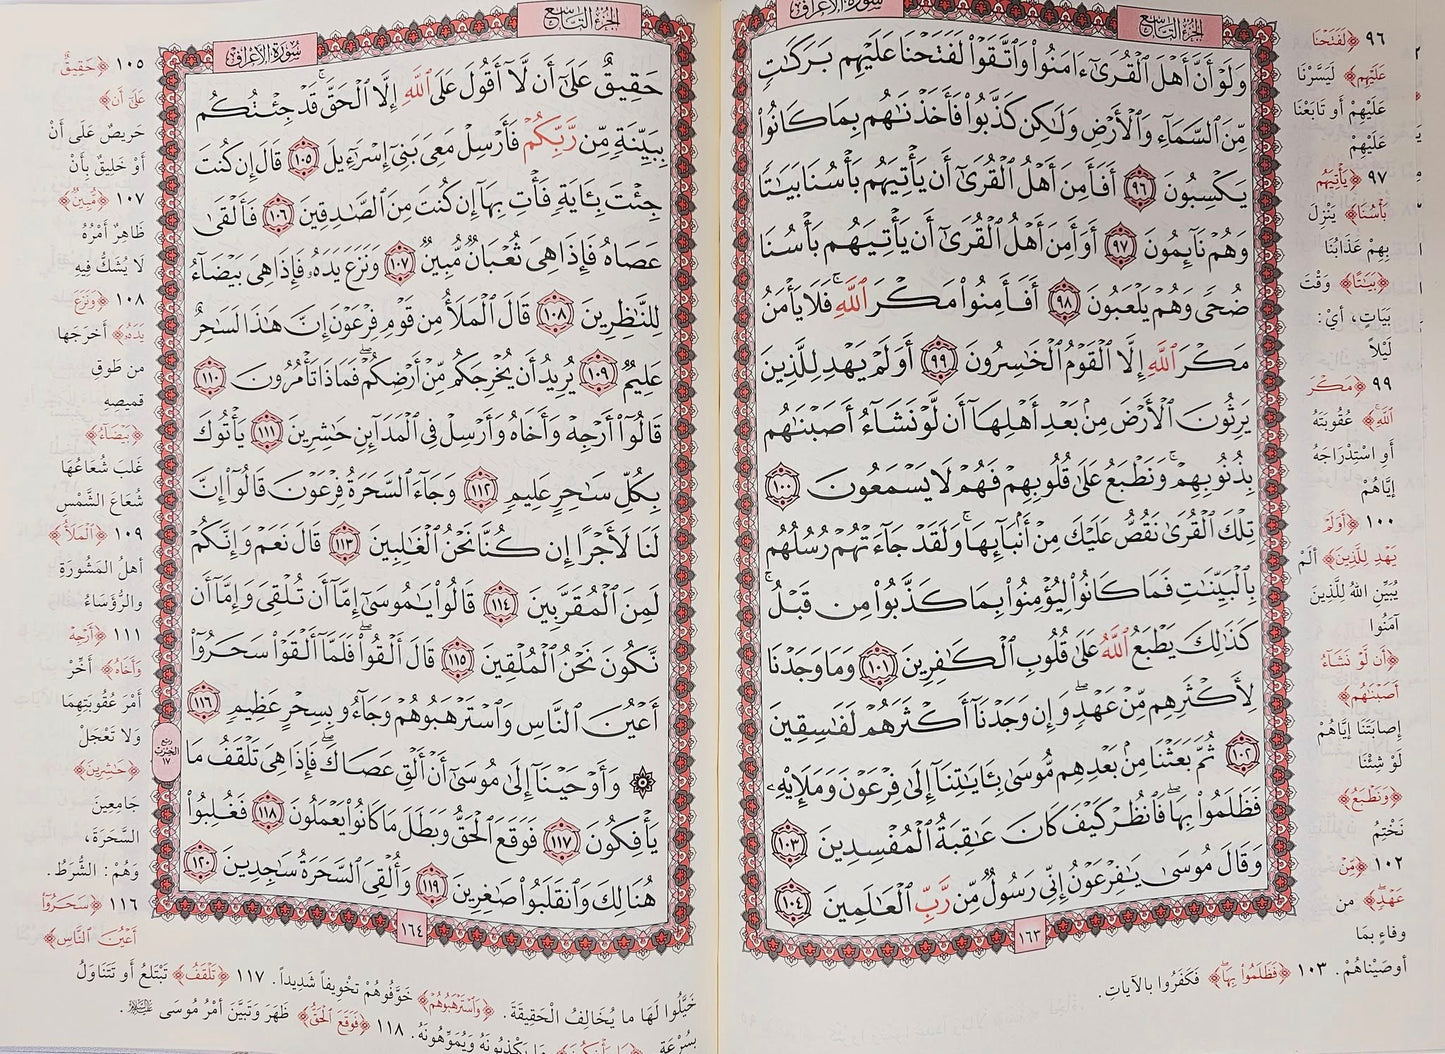 سُورَةُ الأَعْرَافِ
الجُزْءُ التَّاسِعُ
وَلَوْ أَنَّ أَهْلَ ٱلْقُرَىٰٓ ءَامَنُوا۟ وَٱتَّقَوْا۟ لَفَتَحْنَا عَلَيْهِم بَرَكَٰتٍ
مِّنَ ٱلسَّمَآءِ وَٱلْأَرْضِ وَلَٰكِن كَذَّبُوا۟ فَأَخَذْنَٰهُم بِمَا كَانُوا۟
يَكْسِبُونَ ٩٦ أَفَأَمِنَ أَهْلُ ٱلْقُرَىٰٓ أَن يَأْتِيَهُم بَأْسُنَا بَيَٰتًا
وَهُمْ نَآئِمُونَ ٩٧ أَوَأَمِنَ أَهْلُ ٱلْقُرَىٰٓ أَن يَأْتِيَهُم بَأْسُنَا
ضُحًى وَهُمْ يَلْعَبُونَ ٩٨ أَفَأَمِنُوا۟ مَكْرَ ٱللَّهِ ۚ فَلَا يَأْمَنُ
مَكْرَ ٱللَّهِ إِلَّا ٱلْقَوْمُ ٱلْخَٰسِرُونَ ٩٩ أَوَلَمْ يَهْدِ لِلَّذِينَ
يَرِثُونَ ٱلْأَرْضَ مِنۢ بَعْدِ أَهْلِهَآ أَن لَّوْ نَشَآءُ أَصَبْنَٰهُم
بِذُنُوبِهِمْ ۚ وَنَطْبَعُ عَلَىٰ قُلُوبِهِمْ فَهُمْ لَا يَسْمَعُونَ ١٠٠
تِلْكَ ٱلْقُرَىٰ نَقُصُّ عَلَيْكَ مِنْ أَنۢبَآئِهَا ۚ وَلَقَدْ جَآءَتْهُمْ رُسُلُهُم
بِٱلْبَيِّنَٰتِ فَمَا كَانُوا۟ لِيُؤْمِنُوا۟ بِمَا كَذَّبُوا۟ مِن قَبْلُ ۚ
كَذَٰلِكَ يَطْبَعُ ٱللَّهُ عَلَىٰ قُلُوبِ ٱلْكَٰفِرِينَ ١٠١ وَمَا وَجَدْنَا
لِأَكْثَرِهِم مِّنْ عَهْدٍ ۖ وَإِن وَجَدْنَآ أَكْثَرَهُمْ لَفَٰسِقِينَ
١٠٢ ثُمَّ بَعَثْنَا مِنۢ بَعْدِهِم مُّوسَىٰ بِـَٔايَٰتِنَآ إِلَىٰ فِرْعَوْنَ وَمَلَإِي۟هِۦ
فَظَلَمُوا۟ بِهَا ۖ فَٱنظُرْ كَيْفَ كَانَ عَٰقِبَةُ ٱلْمُفْسِدِينَ ١٠٣
وَقَالَ مُوسَىٰ يَٰفِرْعَوْنُ إِنِّى رَسُولٌ مِّن رَّبِّ ٱلْعَٰلَمِينَ ١٠٤
١٦٣
٩٦ ﴿لَفَتَحْنَا
عَلَيْهِم﴾ لَيَسَّرْنَا
عَلَيْهِمْ أو تَابَعْنَا
عَلَيْهِمْ
٩٧ ﴿يَأْتِيَهُم
بَأْسُنَا﴾ يَنْزِلَ
بِهِمْ عَذَابُنَا
﴿بَيَٰتًا﴾ وَقْتَ
بَيَاتٍ، أيْ:
لَيْلاً
٩٩ ﴿مَكْرَ
ٱللَّهِ﴾ عُقُوبَتَهُ
أَوِ اسْتِدْرَاجَهُ
إيَّاهُمْ
١٠٠ ﴿أَوَلَمْ
يَهْدِ لِلَّذِينَ﴾ ألَمْ
يُبَيِّنِ اللهُ لِلَّذِينَ
آمَنُوا
﴿أَن لَّوْ نَشَآءُ
أَصَبْنَٰهُم﴾
إصابَتَنَا إيَّاهُمْ
لَوْ شِئْنَا
﴿وَنَطْبَعُ﴾
نَخْتِمُ
١٠٢ ﴿مِّنْ
عَهْدٍ﴾ من
وفاءٍ بمَا
أوصَيْناهُمْ. ١٠٣ ﴿فَظَلَمُوا۟ بِهَا﴾ فَكَفَرُوا بالآياتِ.
الجُزْءُ التَّاسِعُ
سُورَةُ الأَعْرَافِ
حَقِيقٌ عَلَىٰٓ أَن لَّآ أَقُولَ عَلَى ٱللَّهِ إِلَّا ٱلْحَقَّ ۚ قَدْ جِئْتُكُم
بِبَيِّنَةٍ مِّن رَّبِّكُمْ فَأَرْسِلْ مَعِىَ بَنِىٓ إِسْرَٰٓءِيلَ ١٠٥ قَالَ إِن كُنتَ
جِئْتَ بِـَٔايَةٍ فَأْتِ بِهَآ إِن كُنتَ مِنَ ٱلصَّٰدِقِينَ ١٠٦ فَأَلْقَىٰ
عَصَاهُ فَإِذَا هِىَ ثُعْبَانٌ مُّبِينٌ ١٠٧ وَنَزَعَ يَدَهُۥ فَإِذَا هِىَ بَيْضَآءُ
لِلنَّٰظِرِينَ ١٠٨ قَالَ ٱلْمَلَأُ مِن قَوْمِ فِرْعَوْنَ إِنَّ هَٰذَا لَسَٰحِرٌ
عَلِيمٌ ١٠٩ يُرِيدُ أَن يُخْرِجَكُم مِّنْ أَرْضِكُمْ ۖ فَمَاذَا تَأْمُرُونَ ١١٠
قَالُوٓا۟ أَرْجِهْ وَأَخَاهُ وَأَرْسِلْ فِى ٱلْمَدَآئِنِ حَٰشِرِينَ ١١١ يَأْتُوكَ
بِكُلِّ سَٰحِرٍ عَلِيمٍ ١١٢ وَجَآءَ ٱلسَّحَرَةُ فِرْعَوْنَ قَالُوٓا۟ إِنَّ
لَنَا لَأَجْرًا إِن كُنَّا نَحْنُ ٱلْغَٰلِبِينَ ١١٣ قَالَ نَعَمْ وَإِنَّكُمْ
لَمِنَ ٱلْمُقَرَّبِينَ ١١٤ قَالُوا۟ يَٰمُوسَىٰٓ إِمَّآ أَن تُلْقِىَ وَإِمَّآ أَن
نَّكُونَ نَحْنُ ٱلْمُلْقِينَ ١١٥ قَالَ أَلْقُوا۟ ۖ فَلَمَّآ أَلْقَوْا۟ سَحَرُوٓا۟
أَعْيُنَ ٱلنَّاسِ وَٱسْتَرْهَبُوهُمْ وَجَآءُو بِسِحْرٍ عَظِيمٍ ١١٦
۞ وَأَوْحَيْنَآ إِلَىٰ مُوسَىٰٓ أَنْ أَلْقِ عَصَاكَ ۖ فَإِذَا هِىَ تَلْقَفُ مَا
يَأْفِكُونَ ١١٧ فَوَقَعَ ٱلْحَقُّ وَبَطَلَ مَا كَانُوا۟ يَعْمَلُونَ ١١٨ فَغُلِبُوا۟
هُنَالِكَ وَٱنقَلَبُوا۟ صَٰغِرِينَ ١١٩ وَأُلْقِىَ ٱلسَّحَرَةُ سَٰجِدِينَ ١٢٠
١٦٤
ربع
الحزب
١٧
١٠٥ ﴿حَقِيقٌ
عَلَىٰٓ أَن﴾
حَرِيصٌ عَلَى أَنْ
أَوْ خَلِيقٌ بِأَنْ
١٠٧ ﴿مُّبِينٌ﴾
ظَاهِرٌ أمْرُهُ
لَا يُشَكُّ فِيهِ
١٠٨ ﴿وَنَزَعَ
يَدَهُۥ﴾ أخرَجَها
من طَوقِ
قميصِهِ
﴿بَيْضَآءُ﴾
غَلَبَ شُعَاعُهَا
شُعَاعَ الشَّمْسِ
١٠٩ ﴿ٱلْمَلَأُ﴾
أهلُ المَشُورَةِ
والرُّؤَسَاءُ
١١١ ﴿أَرْجِهْ
وَأَخَاهُ﴾ أَخِّرْ
أمْرَ عُقُوبَتِهِما
وَلا تَعْجَلْ
﴿حَٰشِرِينَ﴾
جَامِعِينَ
السَّحَرَةَ،
وَهُمْ: الشُّرَطُ.
١١٦ ﴿سَحَرُوٓا۟
أَعْيُنَ ٱلنَّاسِ﴾
خَيَّلُوا لَهَا ما يُخَالِفُ الْحَقِيقَةَ. ﴿وَٱسْتَرْهَبُوهُمْ﴾ خَوَّفُوهُمْ تخْوِيفاً شَدِيداً. ١١٧ ﴿تَلْقَفُ﴾ تَبْتَلعُ أَو تَتَنَاوَلُ
بِسُرْعَةٍ ﴿مَا يَأْفِكُونَ﴾ مَا يَكْذِبُونَهُ وَيُمَوِّهُونَهُ. ١١٨ ﴿فَوَقَعَ ٱلْحَقُّ﴾ ظَهَرَ وَتَبَيَّنَ أمْرُ مُوسَى عَلَيْهِ السَّلَامُ.